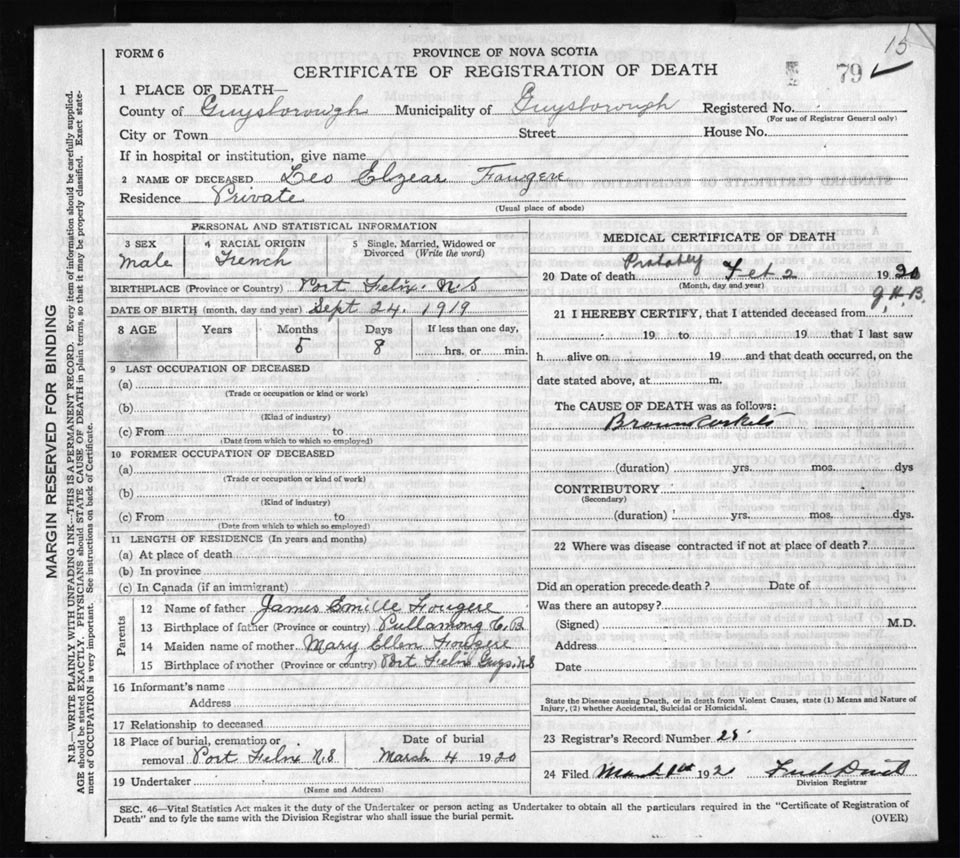 15
FORM 6
PROVINCE OF NOVA SCOTIA
79
CERTIFICATE OF REGISTRATION OF DEATH
1 PLACE OF DEATH—
County of Guysborough Municipality of Guysborough Registered No.
(For use of Registrar General only)
City or Town Street House No.
If in hospital or institution, give name
2 NAME OF DECEASED Leo Elzear Fougere
Residence Private
(Usual place of abode)
PERSONAL AND STATISTICAL INFORMATION
3 SEX 4 RACIAL ORIGIN 5 Single, Married, Widowed or
Divorced (Write the word)
Male French
BIRTHPLACE (Province or Country) Port Felix. N.S
DATE OF BIRTH (month, day and year) Sept 24. 1919
8 AGE Years Months Days If less than one day,
5 8 hrs. or min.
9 LAST OCCUPATION OF DECEASED
(a)
(Trade or occupation or kind or work)
(b)
(Kind of industry)
(c) From to
(Date from which to which so employed)
10 FORMER OCCUPATION OF DECEASED
(a)
(Trade or occupation or kind of work)
(b)
(Kind of industry)
(c) From to
(Date from which to which so employed)
11 LENGTH OF RESIDENCE (In years and months)
(a) At place of death
(b) In province
(c) In Canada (if an immigrant)
Parents
12 Name of father James Emille Fougere
13 Birthplace of father (Province or country) C. B
14 Maiden name of mother Mary Ellen Fougere
15 Birthplace of mother (Province or country) Port Felix Guys. N S
16 Informant's name
Address
17 Relationship to deceased
18 Place of burial, cremation or Date of burial
removal Port Felix N S March 4 1920
19 Undertaker
(Name and Address)
MEDICAL CERTIFICATE OF DEATH
20 Date of death Probably Feb 2 1920
(Month, day and year)
J.H.B.
21 I HEREBY CERTIFY, that I attended deceased from
19 to 19 that I last saw
h alive on 19 and that death occurred, on the
date stated above, at m.
The CAUSE OF DEATH was as follows:
(duration) yrs. mos. dys
CONTRIBUTORY
(Secondary)
(duration) yrs. mos. dys.
22 Where was disease contracted if not at place of death?
Did an operation precede death? Date of
Was there an autopsy?
(Signed) M.D.
Address
Date
State the Disease causing Death, or in death from Violent Causes, state (1) Means and Nature of
Injury, (2) whether Accidental, Suicidal or Homicidal.
23 Registrar's Record Number 28
24 Filed March 192
Division Registrar
SEC. 46—Vital Statistics Act makes it the duty of the Undertaker or person acting as Undertaker to obtain all the particulars required in the "Certificate of Registration of
Death" and to fyle the same with the Division Registrar who shall issue the burial permit.
(OVER)
MARGIN RESERVED FOR BINDING
N.B.—WRITE PLAINLY WITH UNFADING INK—THIS IS A PERMANENT RECORD. Every item of information should be carefully supplied.
AGE should be stated EXACTLY. PHYSICIANS should STATE CAUSE OF DEATH in plain terms, so that it may be properly classified. Exact state-
ment of OCCUPATION is very important. See instructions on back of Certificate.